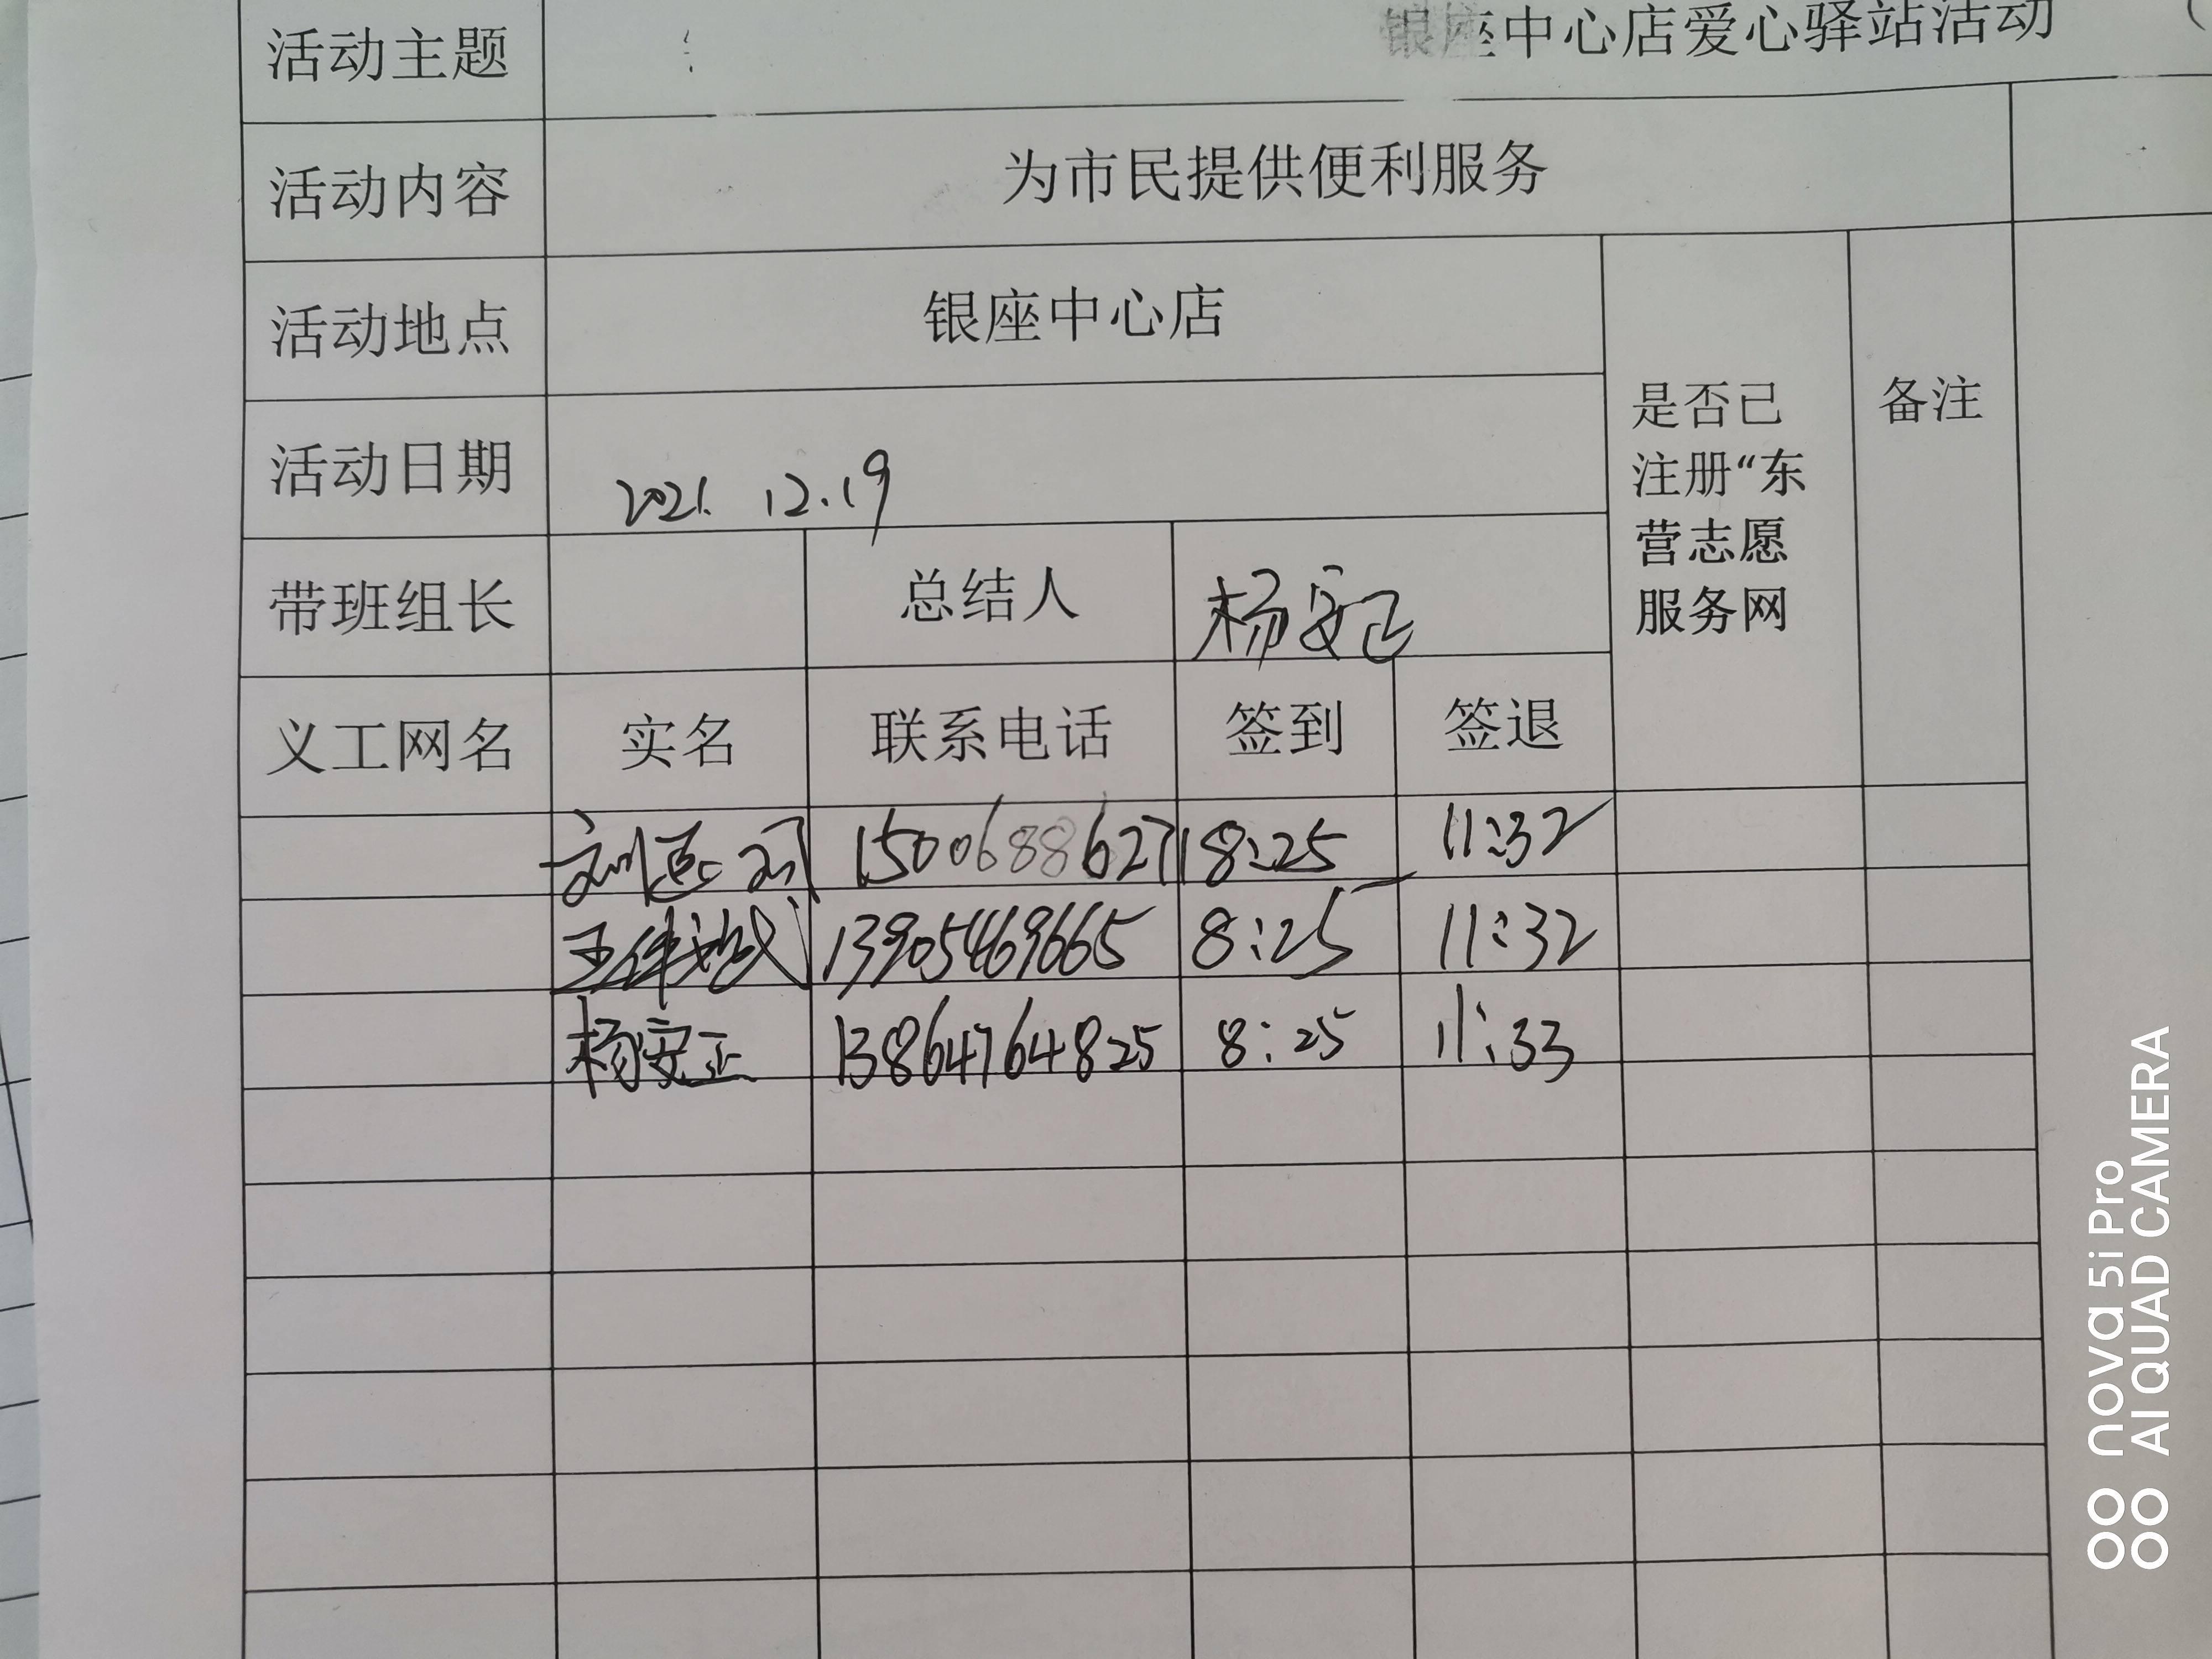 活动主题 银座中心店爱心驿站活动
活动内容 为市民提供便利服务
活动地点 银座中心店
活动日期 2021. 12.19
是否已
注册“东
营志愿
服务网
备注
带班组长 总结人 杨安正
义工网名 实名 联系电话 签到 签退
15006886271 8:25 11:32
13905469665 8:25 11:32
杨安正 13864764825 8:25 11:33
nova 5i Pro
AI QUAD CAMERA